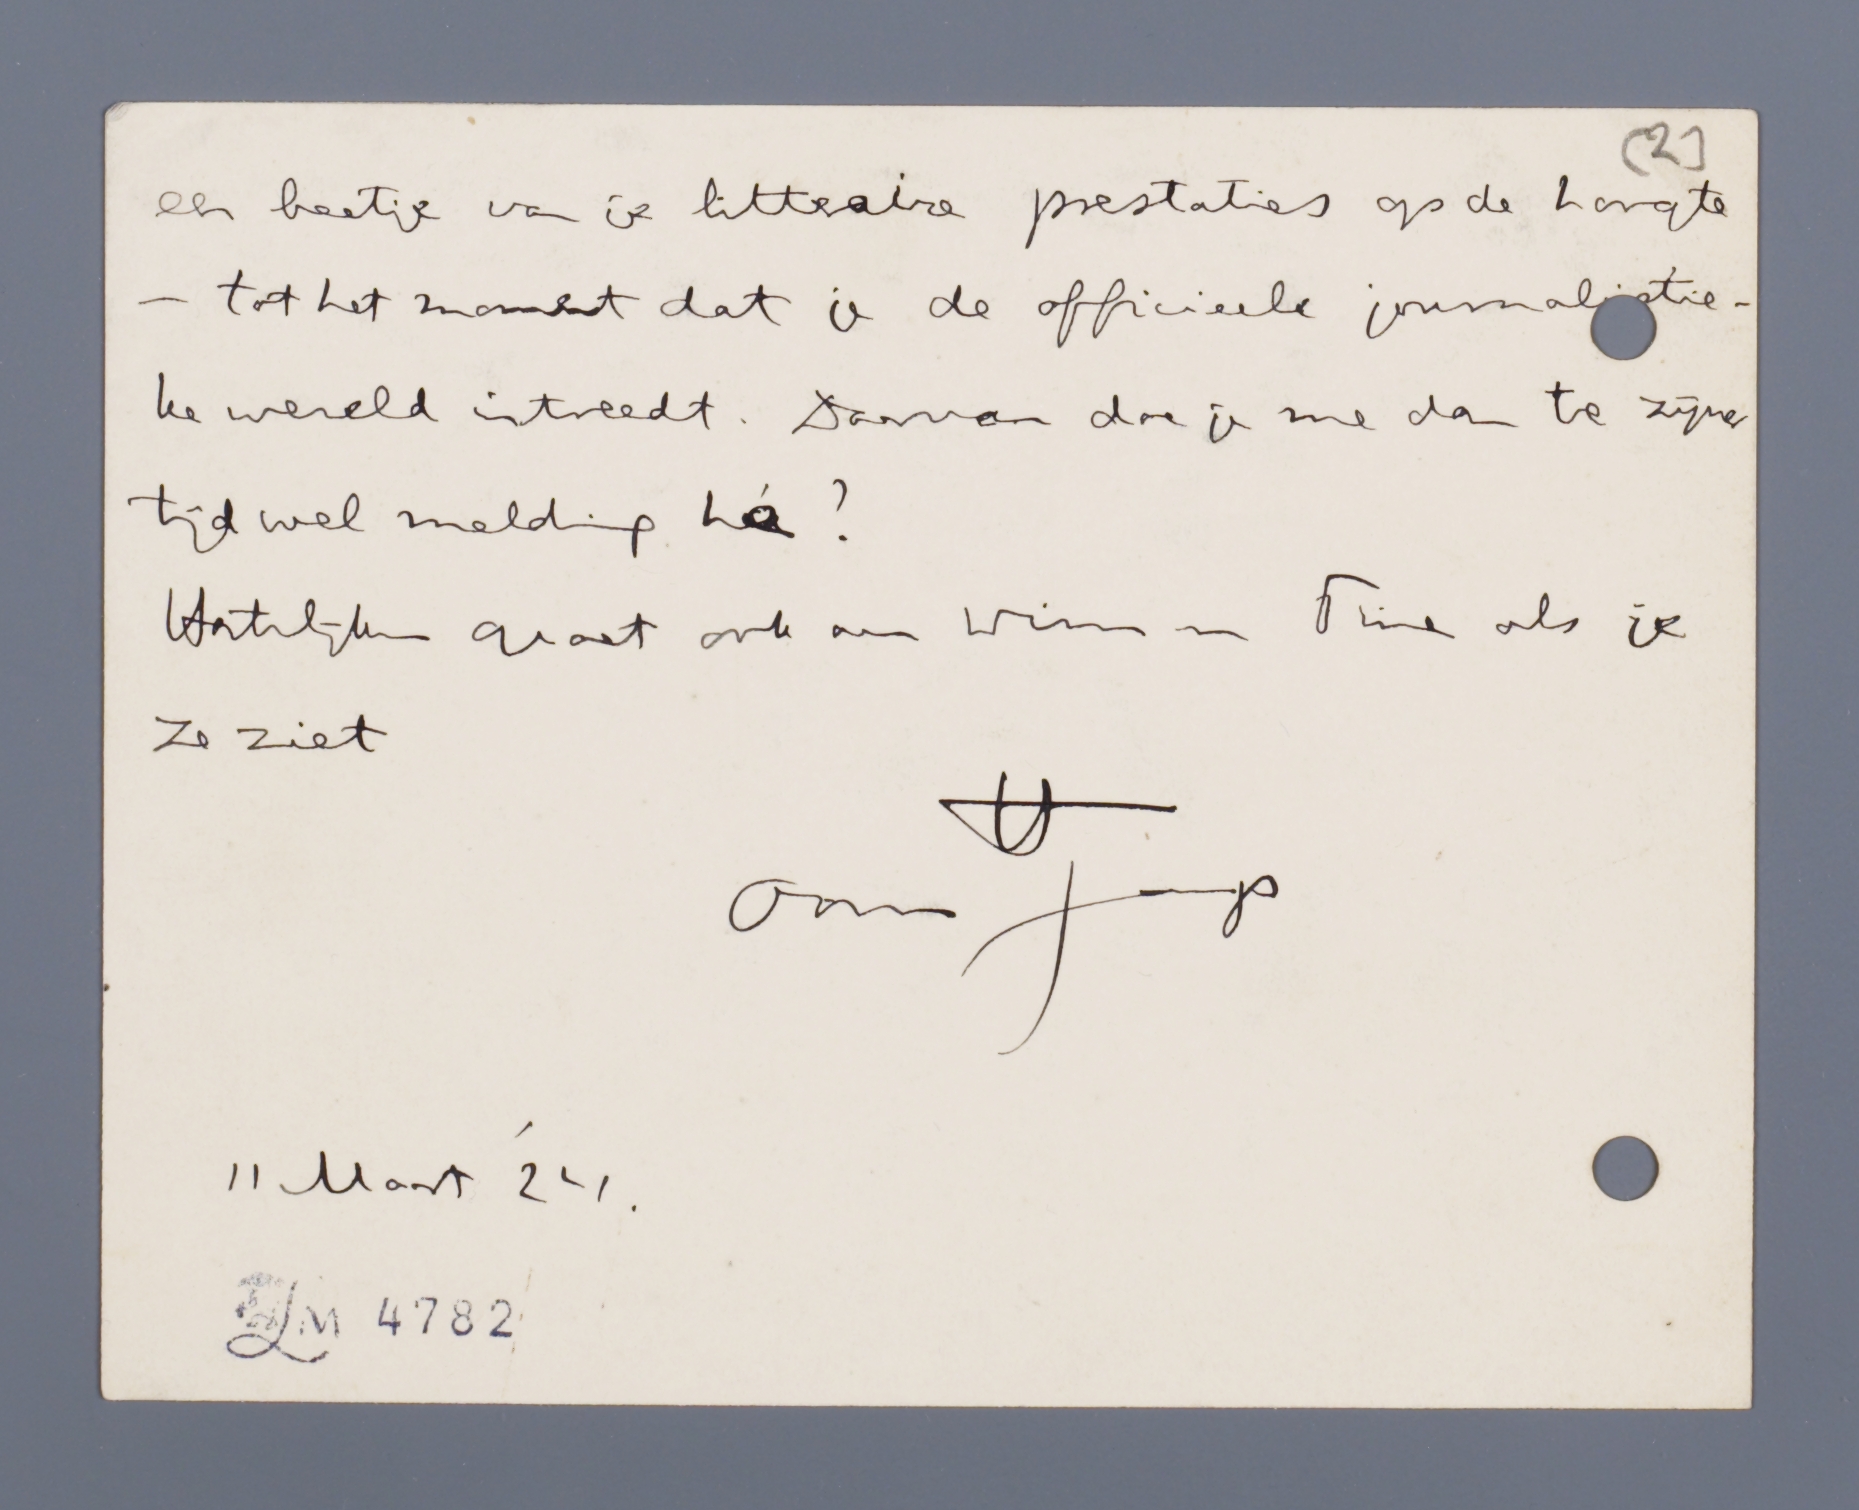 [2]
een beetje van je litteraire prestaties op de hoogte
— tot het moment dat je de officieele journalistie-
ke wereld intreedt. Daarvan doe je me dan te zijner
tijd wel melding hè?
Hartelijken groet ook aan Wim en Tine als je
ze ziet
tt
Oom Jaap
11 Maart '24.
LM 4782